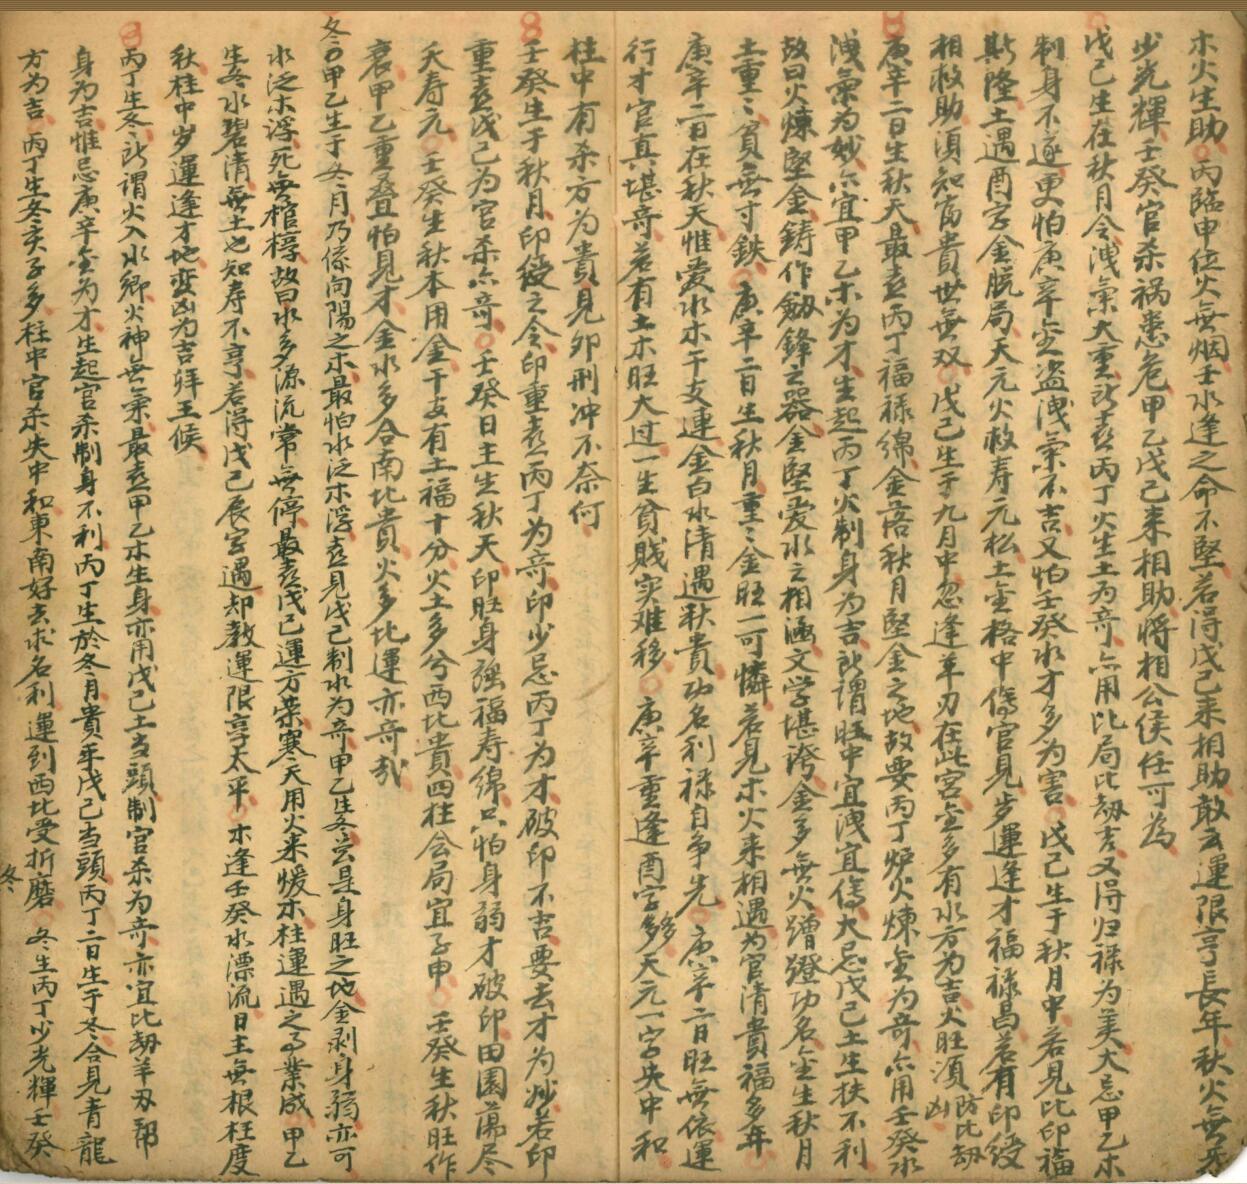 木火生助丙臨申位火無烟壬水逢之命不堅若得戊己来相助敢云運限亨長年秋火無
少光輝壬癸官杀祸患危甲乙戊己来相助將相公侯任可為
戊己生在秋月令洩氣大重所喜丙丁火生土為奇亦用比局比劫吉又得归禄為美大忌甲乙木
制身不遂更怕庚辛金盗洩氣不吉又怕壬癸水才多為害戊己生于秋月中若見比印福
斯隆土遇酉宫金脱局天元火救寿元松土金格中傷官見步運逢才福禄昌若有印绶
相救助須知富貴世無双戊己生于九月中忽逢羊刃在此宮金多有水方為吉火旺須防比劫凶
庚辛二日生秋天最喜丙丁福禄綿金落秋月堅金之地故要丙丁炉火煉金為奇亦用壬癸水
洩氣为妙亦宜甲乙木为才生起丙丁火制身为吉所謂旺中宜洩宜傷大忌戊己土生扶不利
故曰火煉堅金鋳作劔鋒之器金堅爱水之相涵文学堪誇金多無火蹭蹬功名金生秋月
土重之貧無寸鉄庚辛二日生秋月重之金旺一可憐若見木火来相遇为官清貴福多年
庚辛二日在秋天惟爱水木干支連金白水清遇秋貴功名利禄自争先庚辛二日旺無依運
行才官真堪奇若有土木旺大过一生貧賤实难移庚辛重逢酉字多天元一字失中和
柱中有杀方为貴見卯刑冲不奈何
壬癸生于秋月印绶之令印重喜丙丁为奇印少忌丙丁为才破印不吉要去才为妙若印
重喜戊己为官杀亦奇壬癸日主生秋天印旺身强福寿綿只怕身弱才破印田園蕩尽
夭寿元壬癸生秋本用金干支有土福十分火土多兮西北貴四柱合局宜子申壬癸生秋旺作
哀甲乙重叠怕見才金水多合南北貴火多北運亦奇哉
冬甲乙生于冬月乃係向陽之木最怕水泛木浮喜見戊己制水为奇甲乙生冬尝是身旺之地金剥身弱亦可
水泛木浮死無棺椁故曰水多源流常無停最喜戊己運方荣寒天用火来煖木柱運遇之事業成甲乙
生冬水碧清無土也知寿不亨若得戊己辰字遇却教運限亨太平木逢壬癸水漂流日主無根枉度
秋柱中岁運逢才地変凶为吉拜王候
丙丁生冬所谓火入水鄉火神無氣最喜甲乙木生身亦用戊己土当頭制官杀为奇亦宜比劫羊刃帮
身为吉惟忌庚辛金为才生起官杀制身不利丙丁生於冬月貴乎戊己当頭丙丁二日生于冬合見青龍
方为吉丙丁生冬亥子多柱中官杀失中和東南好去求名利運到西北受折磨冬生丙丁少光輝壬癸
冬